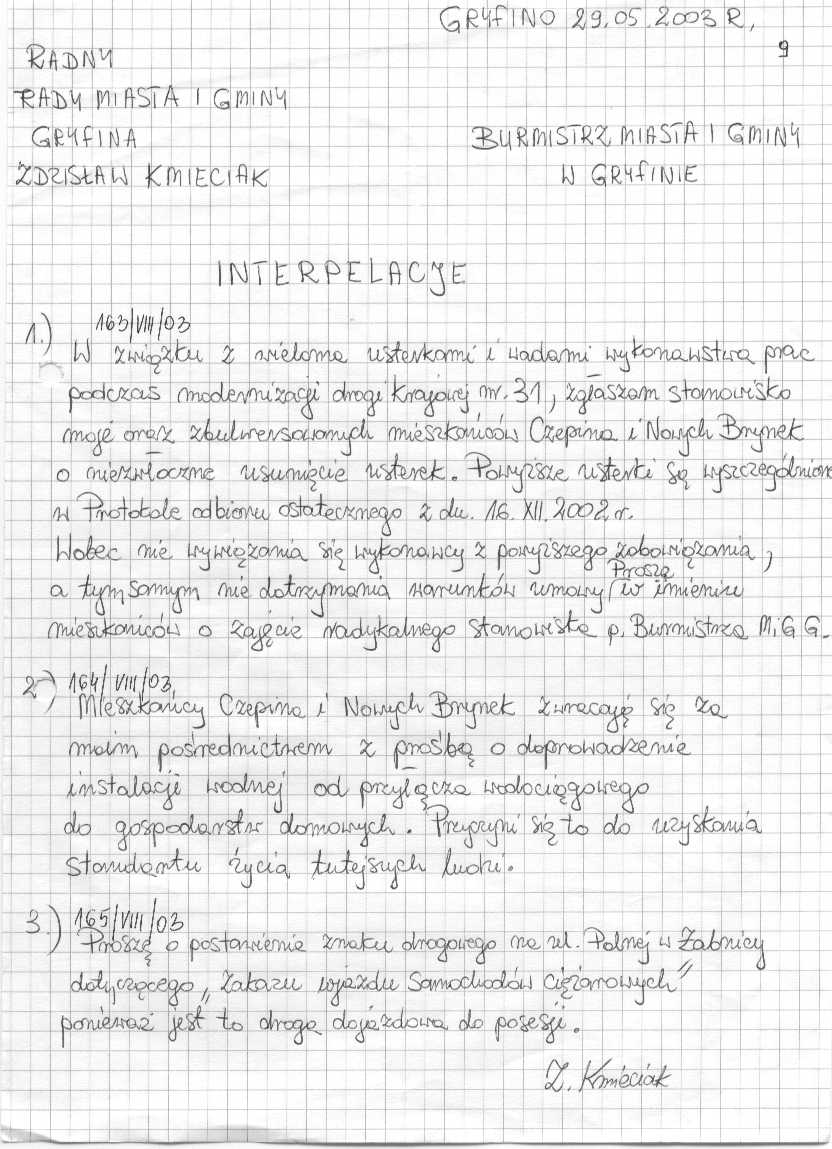 GRYFINO 29.05.2003 R,
9
RADNY
RADY MIASTA I GMINY
GRYFINA
ZDZISŁAW KMIECIAK
BURMISTRZ MIASTA I GMINY
W GRYFINIE
INTERPELACJE
1.) 163/VIII/03
W związku z wieloma usterkami i wadami wykonawstwa prac
podczas modernizacji drogi Krajowej nr. 31, zgłaszam stanowisko
moje oraz zbulwersowanych mieszkańców Czepina i Nowych Brynek
o niezwłoczne usunięcie usterek. Powyższe usterki są wyszczególnione
w Protokole odbioru ostatecznego z dn. 16. XII. 2002 r.
Wobec nie wywiązania się wykonawcy z powyższego zobowiązania,
a tym samym nie dotrzymania warunków umowy Proszę w imieniu
mieszkańców o zajęcie radykalnego stanowiska p. Burmistrza M i G G.
2.) 164/VIII/03
Mieszkańcy Czepina i Nowych Brynek zwracają się za
moim pośrednictwem z prośbą o doprowadzenie
instalacji wodnej od przyłącza wodociągowego
do gospodarstw domowych. Przyczyni się to do uzyskania
standartu życia tutejszych ludzi.
3.) 165/VIII/03
Proszę o postawienie znaku drogowego na ul. Polnej w Żabnicy
dotyczącego „Zakazu wjazdu Samochodów ciężarowych"
ponieważ jest to droga dojazdowa do posesji.
Z. Kmieciak